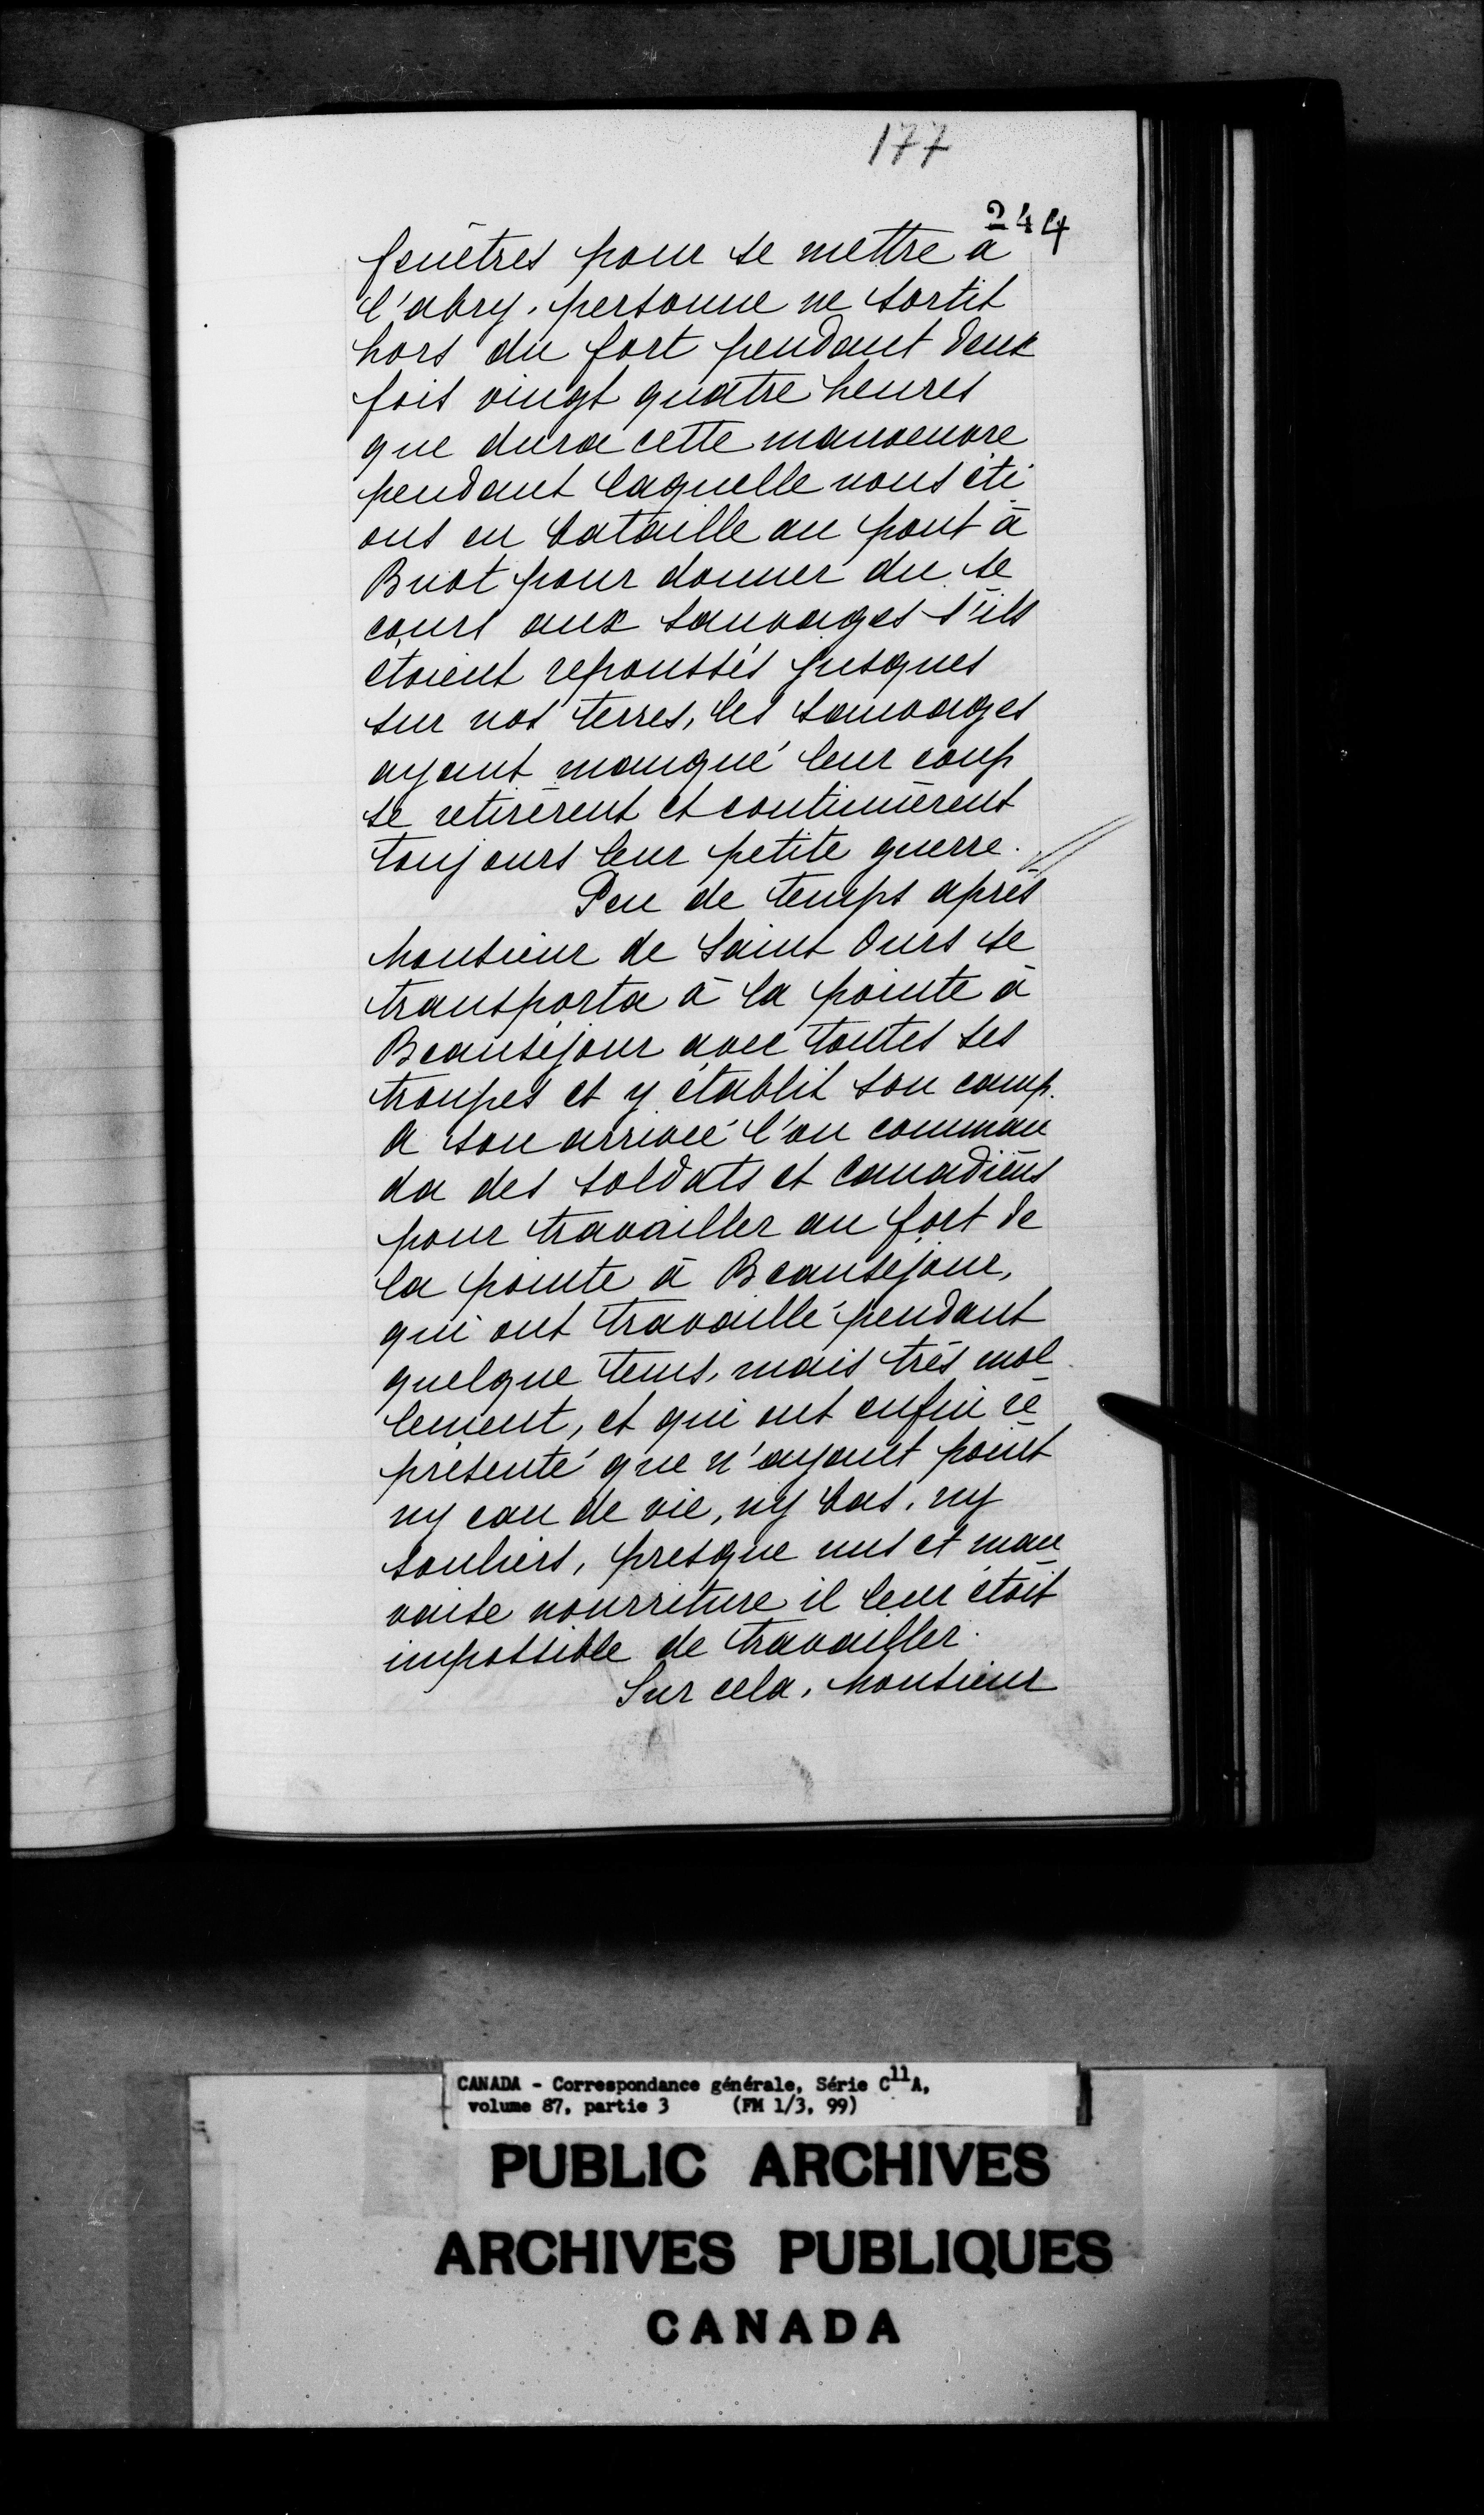 177
244
fenêtres pour se mettre à
l'abry. personne ne sortit
hors du fort pendant deux
fois vingt quatre heures
que dura cette manoeuvre
pendant laquelle nous éti
ons en bataille au pont à
Buot pour donner du se
cours aux sauvages s'ils
étoient repoussés jusques
sur nos terres, les sauvages
ayant manqué leur coup
se retirèrent et continuèrent
toujours leur petite guerre.
Peu de temps après
Monsieur de Saint Ours se
transporta à la pointe à
Beauséjour avec toutes ses
troupes et y établit son camp.
a son arrivée l'on comman
da des soldats et Canadiens
pour travailler au fort de
la pointe à Beauséjour,
qui ont travaillé pendant
quelque tems, mais très mol
lement, et qui ont enfin re
présenté que n'ayant point
ny eau de vie, ny bas, ny
souliers, presque nus et mau
vaise nourriture il leur étoit
impossible de travailler.
Sur cela, Monsieur
CANADA - Correspondance générale, Série C11A,
volume 87, partie 3 (FM 1/3, 99)
PUBLIC ARCHIVES
ARCHIVES PUBLIQUES
CANADA